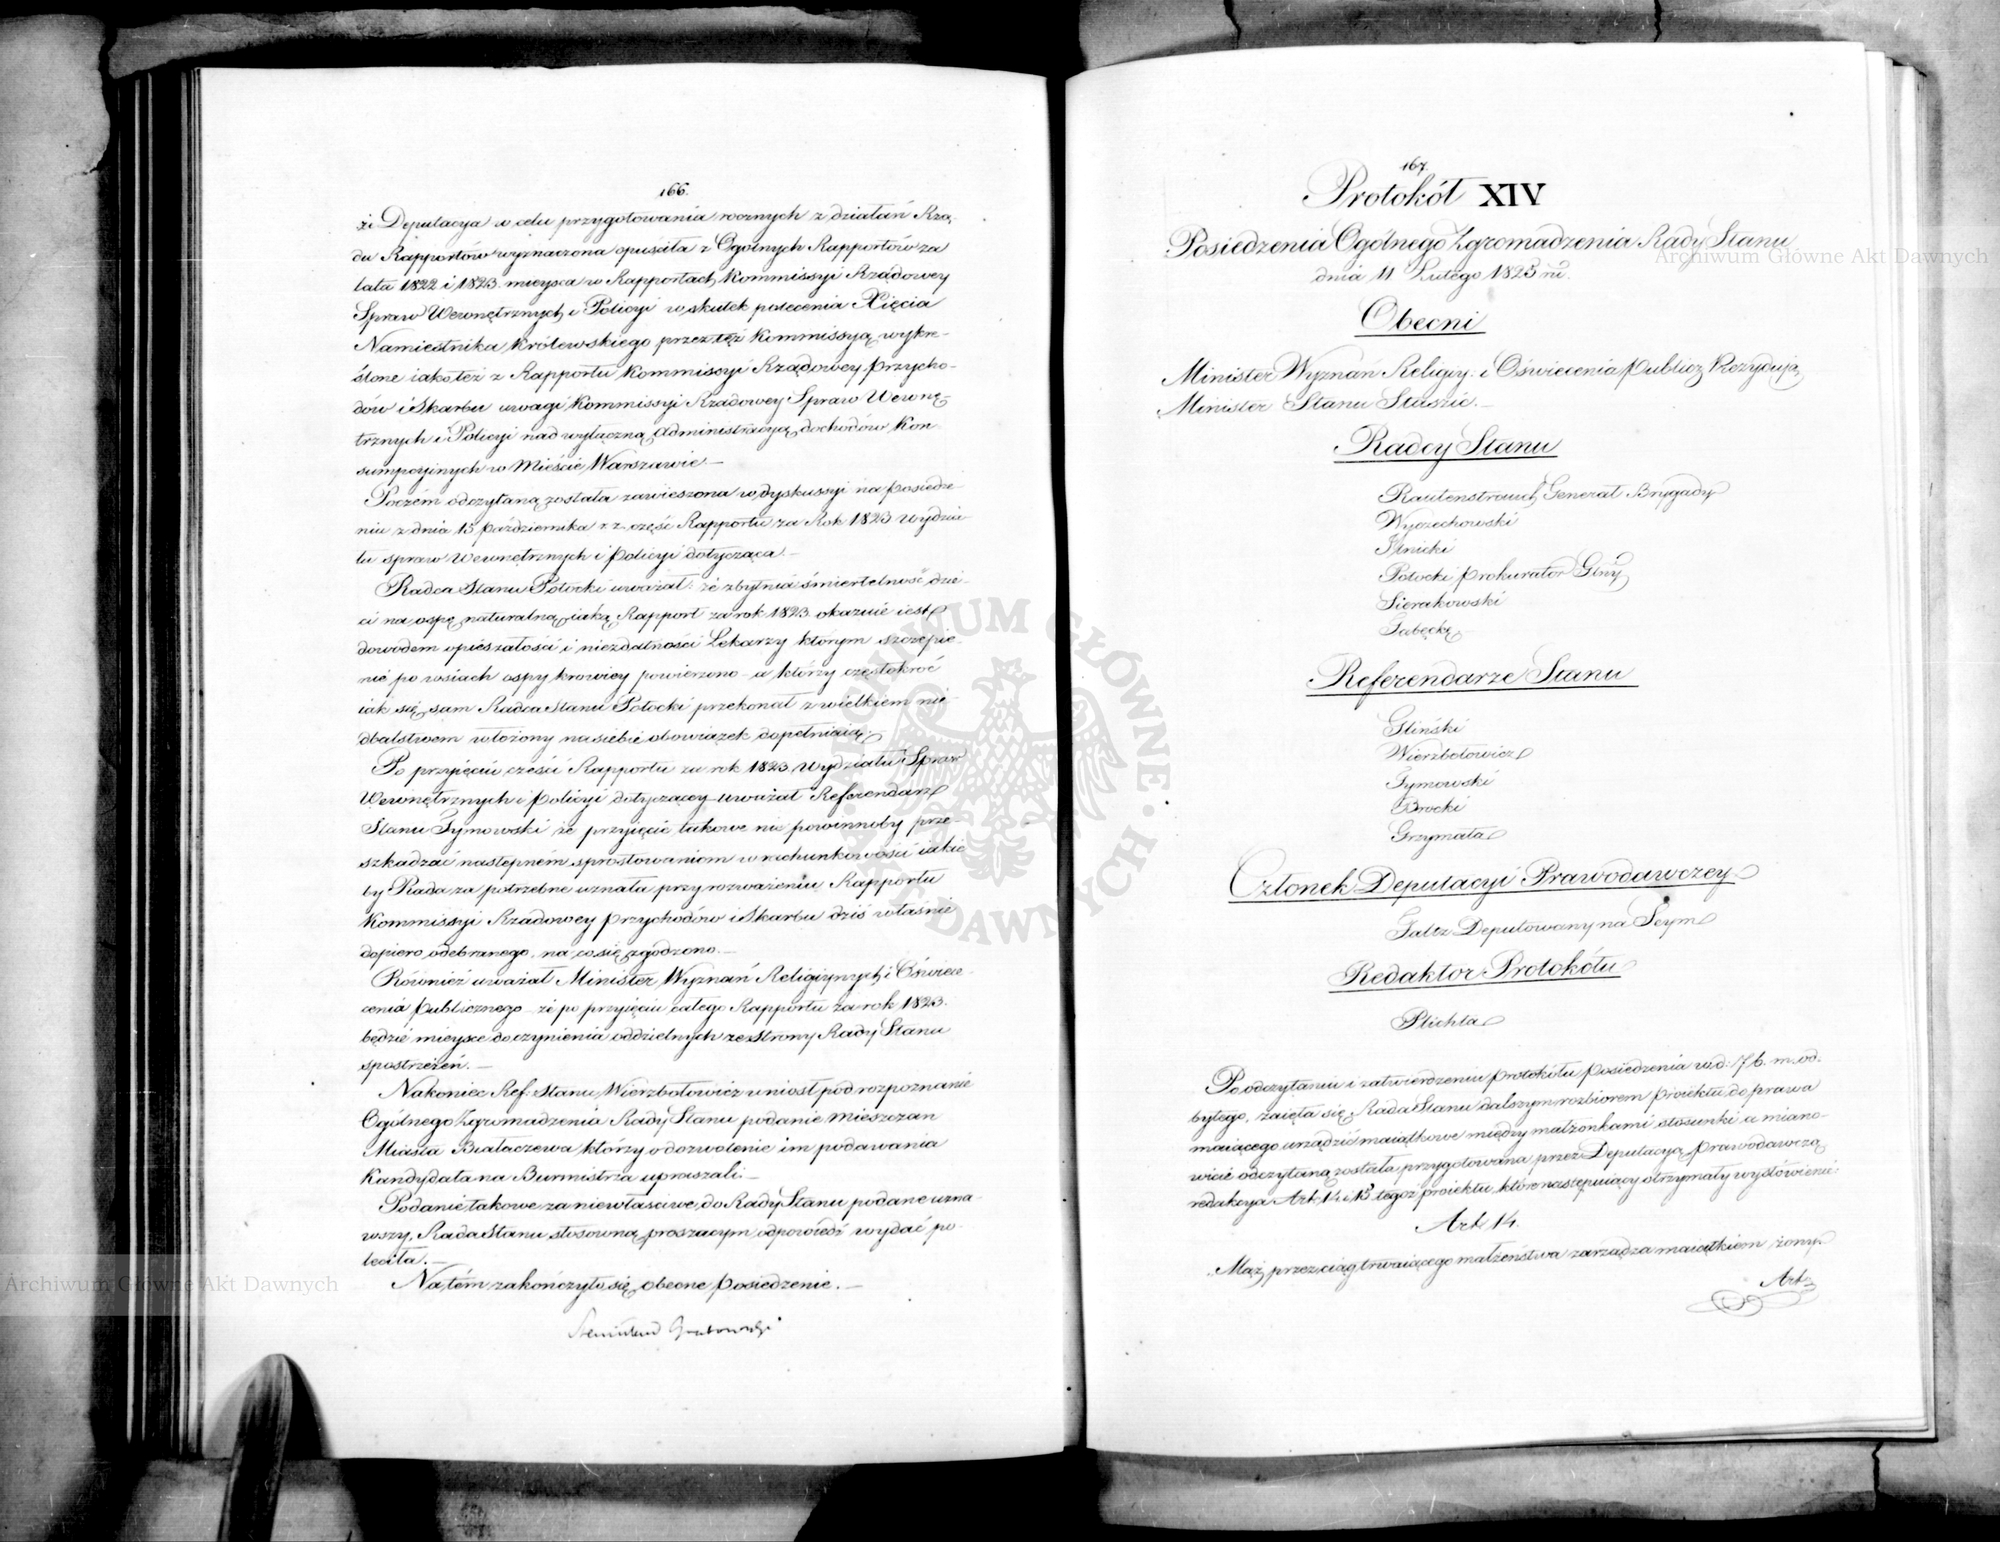 166.
że Deputacya w celu przygotowania rocznych z działań Rzą-
du Rapportów wyznaczona opuściła z Ogólnych Rapportów za
lata 1822 i 1823 mieysca w Rapportach Kommissyi Rządowey
Spraw Wewnętrznych i Policyi w skutek polecenia Xięcia
Namiestnika Królewskiego przez też Kommissyą wykre-
ślone iako też z Rapportu Kommissyi Rządowey Przycho-
dów i Skarbu uwagi Kommissyi Rządowey Spraw Wewnę-
trznych i Policyi nad wyłączną Administracyą dochodów Kon-
sumpcyinych w Mieście Warszawie.—
Poczém odczytaną została zawieszona w dyskussyi na posiedze-
niu z dnia 15 Października r. z. część Rapportu za Rok 1823 Wydzia-
łu spraw Wewnętrznych i Policyi dotycząca.—
Radca Stanu Potocki uważał: że zbytnia śmiertelność dzie-
ci na ospę naturalną, iaką Rapport za rok 1823 okazuie iest
dowodem opieszałości i niezdatności Lekarzy którym szczepie-
nie po wsiach ospy krowiey powierzono a którzy częstokroć
iak się sam Radca Stanu Potocki przekonał z wielkiem nie-
dbalstwem włożony na siebie obowiązek dopełniaią.
Po przyięciu części Rapportu za rok 1823 Wydziału Spraw
Wewnętrznych i Policyi dotyczącey uważał Referendarz
Stanu Tymowski że przyięcie takowe nie powinnoby prze-
szkadzać następném sprostowaniom w rachunkowości iakie
by Rada za potrzebne uznała przy rozważeniu Rapportu
Kommissyi Rządowey Przychodów i Skarbu dziś właśnie
dopiero odebranego, na co się zgodzono.—
Również uważał Minister Wyznań Religiynych i Oświe-
cenia Publicznego że po przyięciu całego Rapportu za rok 1823.
będzie mieysce do czynienia oddzielnych ze strony Rady Stanu
spostrzeżeń.—
Nakoniec Ref: Stanu Wierzbołowicz uniosł pod rozpoznanie
Ogólnego Zgromadzenia Rady Stanu podanie Mieszczan
Miasta Białaczewa którzy o dozwolenie im podawania
Kandydata na Burmistrza upraszali.—
Podanie takowe za niewłaściwe do Rady Stanu podane uzna-
wszy, Rada Stanu stosowną proszącym odpowiedź wydać po-
leciła.—
Na tém zakończyło się obecne Posiedzenie.—
Stanisław Grabowski
167.
Protokół XIV
Posiedzenia Ogólnego Zgromadzenia Rady Stanu
dnia 11 Lutego 1825 ru.
Obecni
Minister Wyznań Religiy: i Oświecenia Publicz Prezyduią
Minister Stanu Staszic.—
Radcy Stanu
Rautenstrauch Generał Brygady
Wyczechowski
Ilnicki
Potocki Prokurator Glny
Sierakowski
Tabęcki
Referendarze Stanu
Gliński
Wierzbołowicz
Tymowski
Brocki
Grzymała
Członek Deputacyi Prawodawczey
Faltz Deputowany na Seym
Redaktor Protokółu
Plichta
Po odczytaniu i zatwierdzeniu protokółu posiedzenia w d: 7 b. m. od-
bytego, zaięła się Rada Stanu dalszym rozbiorem proiektu do prawa
maiącego urządzić maiątkowe między małżonkami stosunki a miano-
wicie odczytaną została przygotowana przez Deputacyą Prawodawczą
redakcya Art: 14 i 15 tegoż proiektu, które następuiący otrzymały wysłowienie:
Art 14.
„Mąż przez ciąg trwaiącego małżeństwa zarządza maiątkiem żony
Art:
Archiwum Główne Akt Dawnych
Archiwum Główne Akt Dawnych
ARCHIWUM GŁÓWNE AKT DAWNYCH